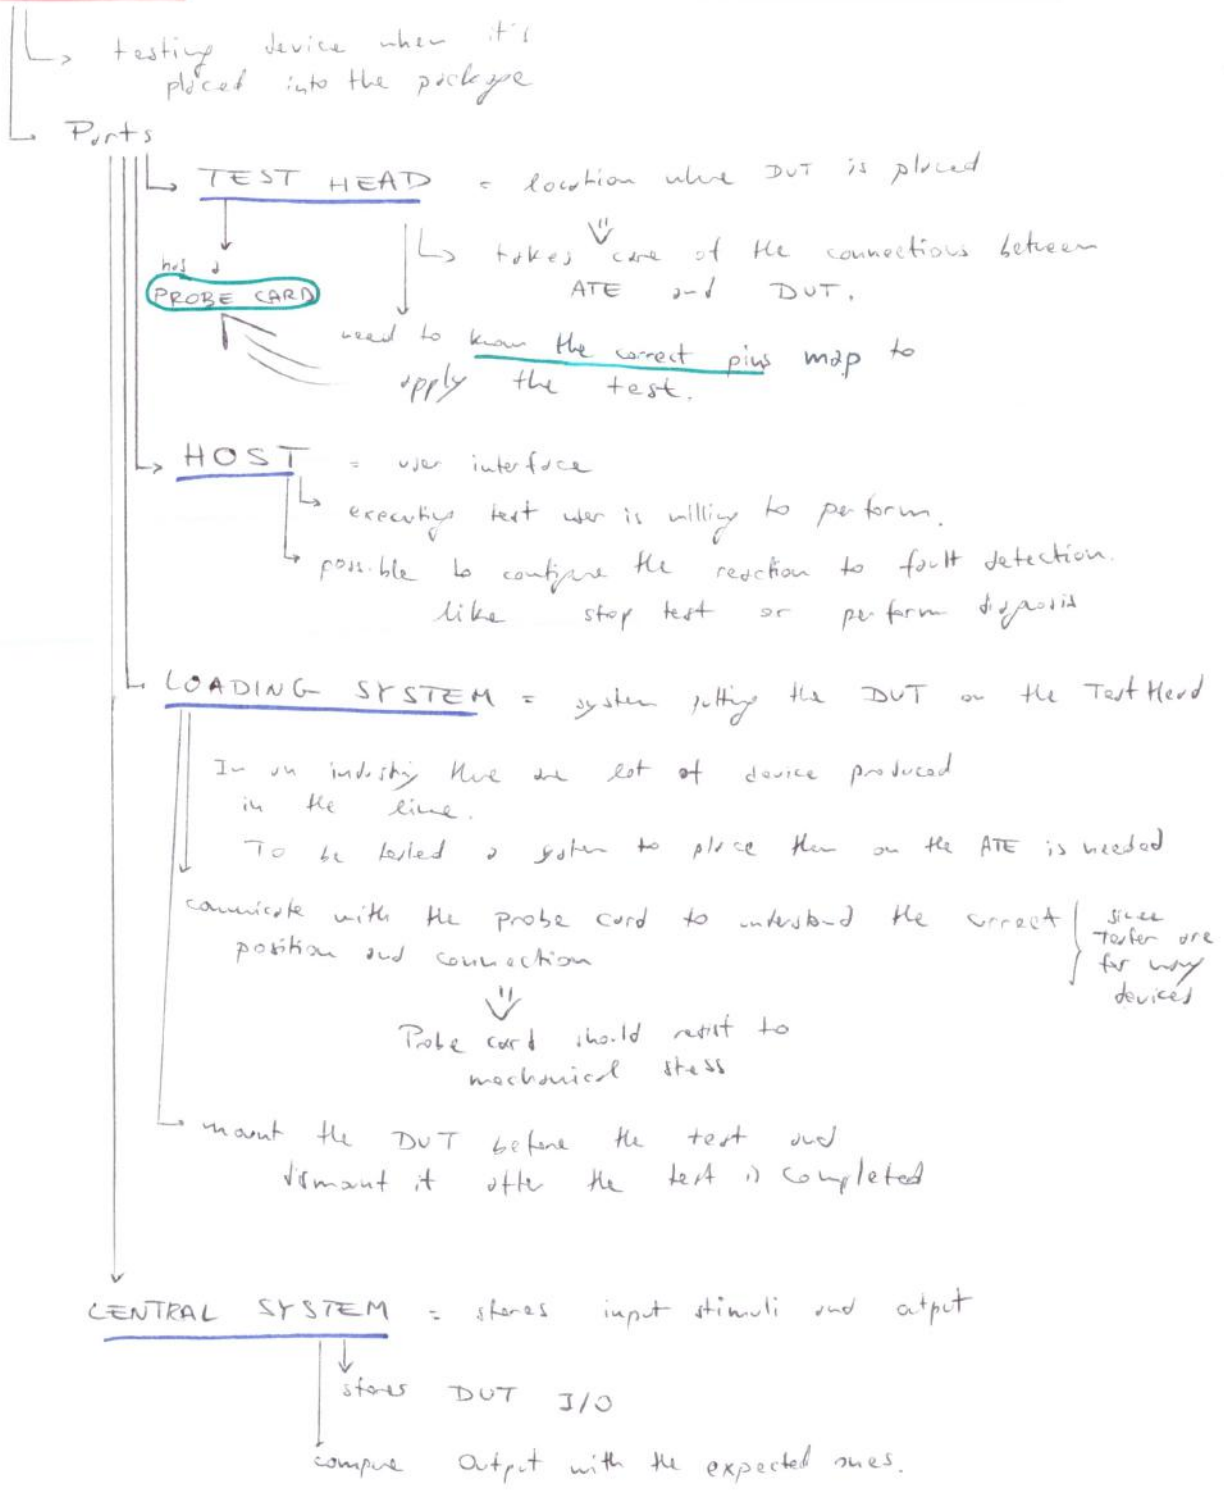 testing device when it's
placed into the package
Parts
TEST HEAD = location where DUT is placed
takes care of the connections between
ATE and DUT.
has a
PROBE CARD
need to know the correct pins map to
apply the test.
HOST = user interface
executing test user is willing to perform.
possible to configure the reaction to fault detection.
like stop test or perform diagnosis
LOADING SYSTEM = system putting the DUT on the Test Head
In an industry there are lot of device produced
in the line.
To be tested a system to place them on the ATE is needed
comunicate with the probe card to understand the correct
position and connection
since
Tester are
for many
devices
Probe card should resist to
mechanical stess
mount the DUT before the test and
dismount it after the test is completed
CENTRAL SYSTEM = stores input stimuli and output
stores DUT I/O
compare Output with the expected ones.